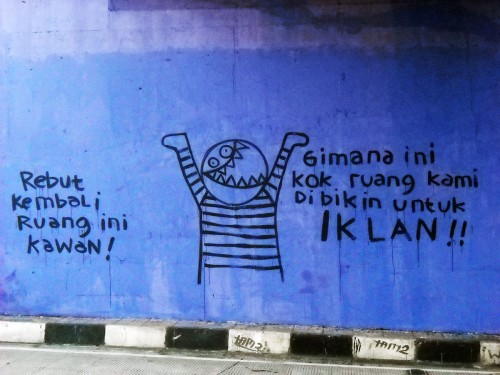 Rebut
Kembali
Ruang ini
Kawan!
Gimana ini
kok ruang kami
Dibikin untuk
IKLAN!!